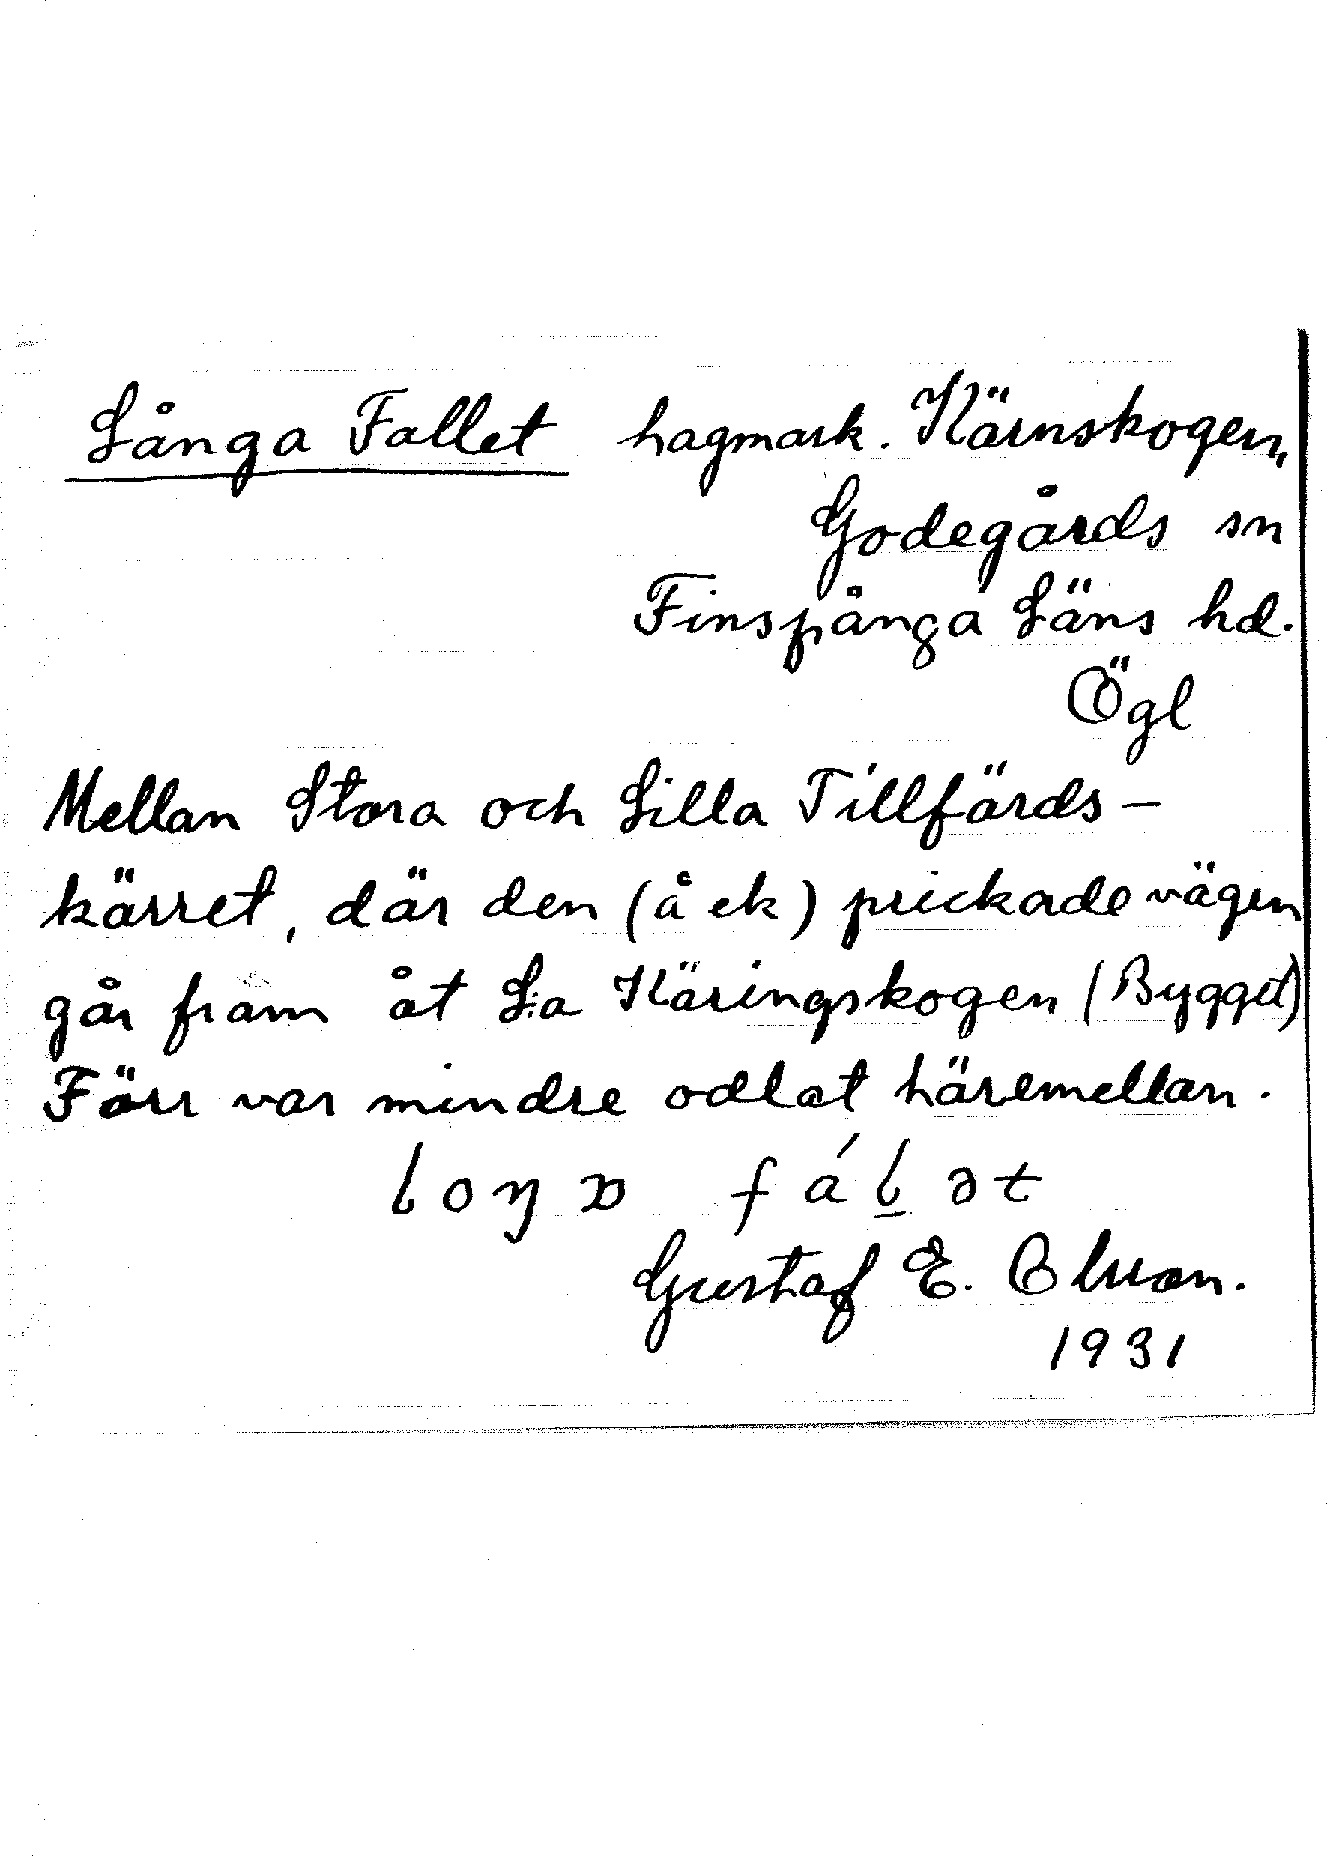 Långa Fallet hagmark. Kärnskogen,
Godegårds sn
Finspånga Läns hd.
Ögl
Mellan Stora och Lilla Tillfärds-
kärret, där den (å ek) prickade vägen
går fram åt L:a Käringskogen (Bygget)
Förr var mindre odlat häremellan.
loŋa fálət
Gustaf E.
1931